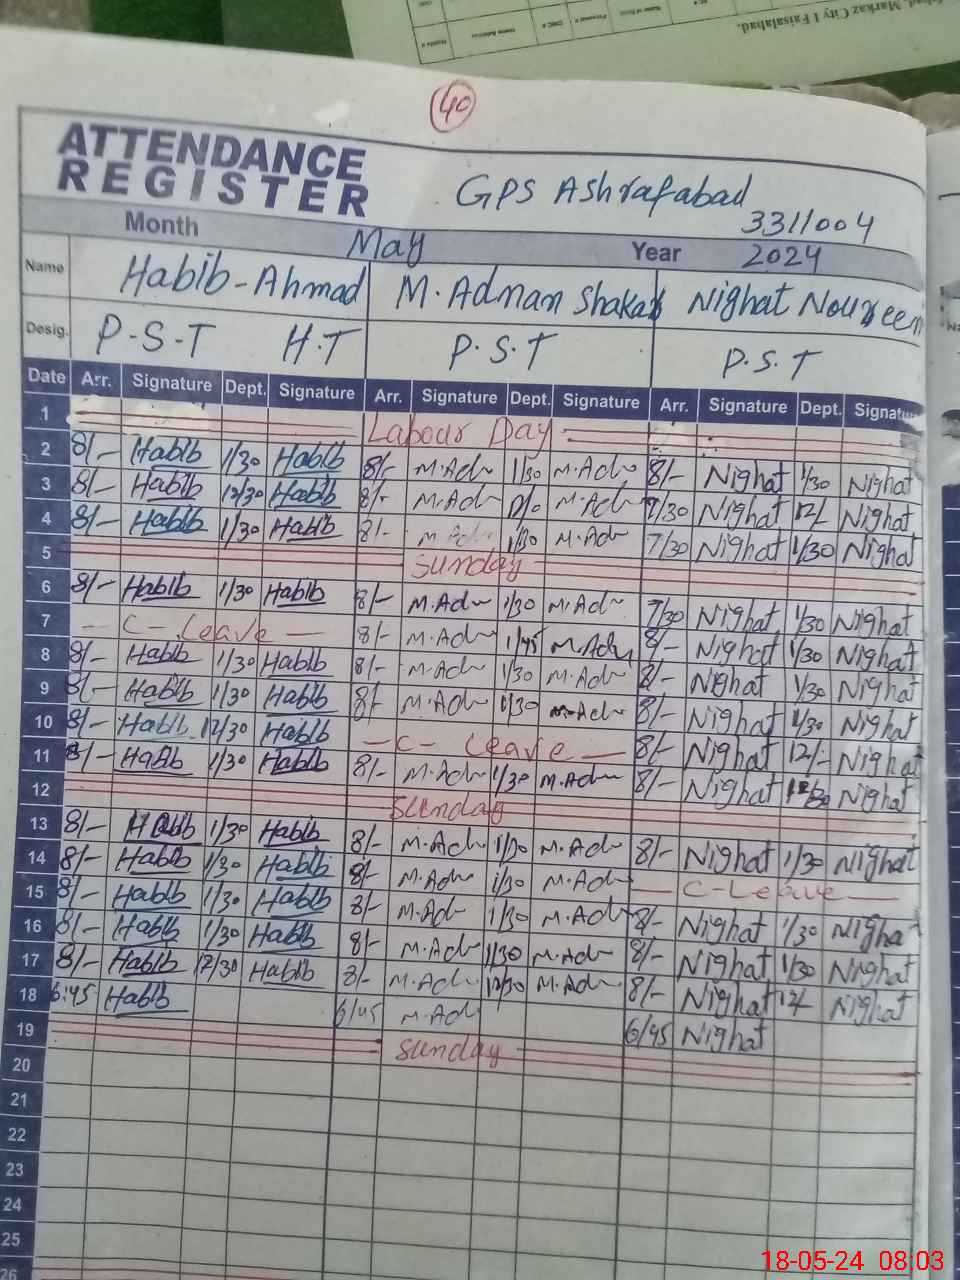 Markaz City I Faisalabad.
40
ATTENDANCE
REGISTER
GPS Ashrafabad
3311004
Month May Year 2024
Name Habib-Ahmad M.Adnan Shakar Nighat Noureen
Desig. P.S.T H.T P.S.T P.S.T
Date Arr. Signature Dept. Signature Arr. Signature Dept. Signature Arr. Signature Dept. Signatu
1 Labour Day
2 8/- Habib 1/30 Habib 8/- M.Adn 1/30 M.Adn 8/- Nighat 1/30 Nighat
3 8/- Habib 12/30 Habib 8/- M.Adn M.Adn 7/30 Nighat 12/- Nighat
4 8/- Habib 1/30 Habib 8/- M.Adn 1/30 M.Adn 7/30 Nighat 1/30 Nighat
5 Sunday
6 8/- Habib 1/30 Habib 8/- M.Adn 1/30 M.Adn 7/30 Nighat 1/30 Nighat
7 - C - Leave - 8/- M.Adn 1/45 M.Adn 8/- Nighat 1/30 Nighat
8 8/- Habib 1/30 Habib 8/- M.Adn 1/30 M.Adn 8/- Nighat 1/30 Nighat
9 8/- Habib 1/30 Habib 8/- M.Adn 1/30 M.Adn 8/- Nighat 1/30 Nighat
10 8/- Habib 12/30 Habib - C - Leave - 8/- Nighat 12/- Nighat
11 8/- Habib 1/30 Habib 8/- M.Adn 1/30 M.Adn 8/- Nighat Nighat
12 Sunday
13 8/- Habib 1/30 Habib 8/- M.Adn 1/30 M.Adn 8/- Nighat 1/30 Nighat
14 8/- Habib 1/30 Habib 8/- M.Adn 1/30 M.Adn - C-Leave -
15 8/- Habib 1/30 Habib 8/- M.Adn 1/30 M.Adn 8/- Nighat 1/30 Nighat
16 8/- Habib 1/30 Habib 8/- M.Adn 1/30 M.Adn 8/- Nighat 1/30 Nighat
17 8/- Habib 12/30 Habib 8/- M.Adn 12/30 M.Adn 8/- Nighat 12/ Nighat
18 6:45 Habib 6/45 M.Adn 6/45 Nighat
19 Sunday
20
21
22
23
24
25
26
18-05-24 08:03